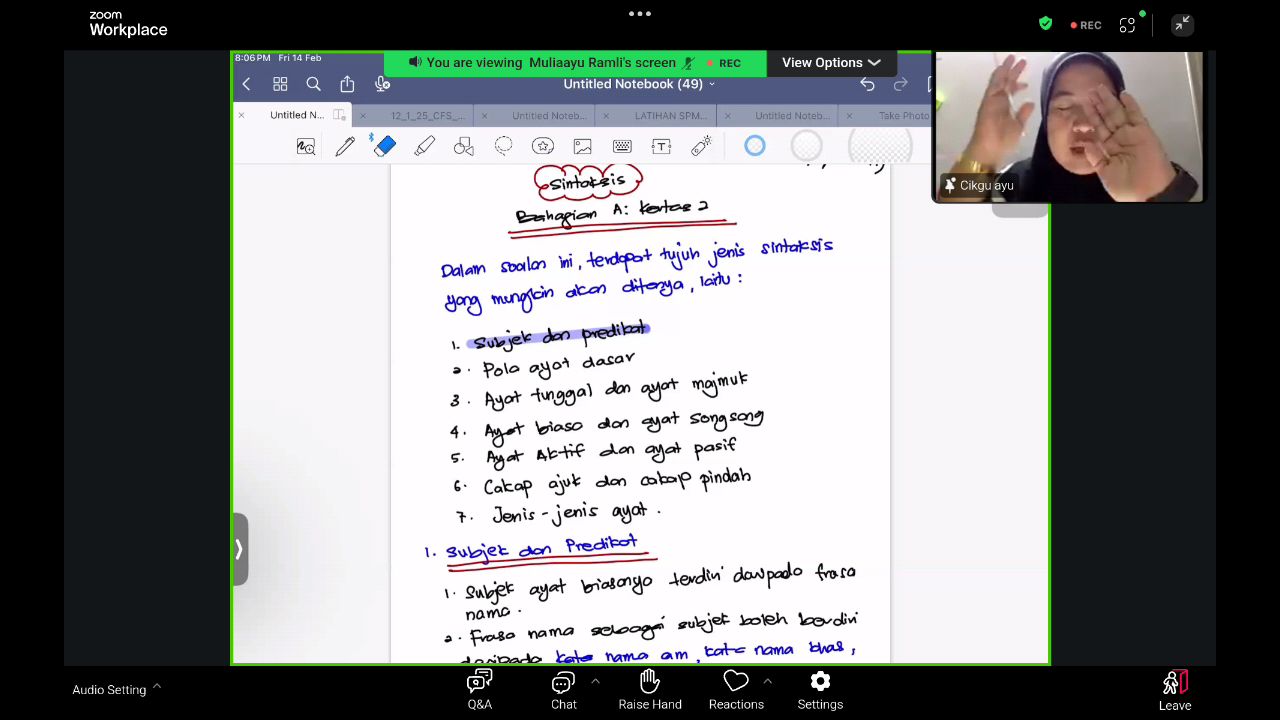 zoom
Workplace
REC
8:06 PM Fri 14 Feb
You are viewing Muliaayu Ramli's screen REC
View Options
Untitled Notebook (49)
Untitled N...
12_1_25_CFS_...
Untitled Noteb...
LATIHAN SPM...
Untitled Noteb...
Take Photo
Cikgu ayu
Sintaksis
Bahagian A: Kertas 2
Dalam soalan ini, terdapat tujuh jenis sintaksis
yang mungkin akan ditanya, iaitu :
1. Subjek dan predikat
2. Pola ayat dasar
3. Ayat tunggal dan ayat majmuk
4. Ayat biasa dan ayat songsang
5. Ayat Aktif dan ayat pasif
6. Cakap ajuk dan cakap pindah
7. Jenis-jenis ayat.
1. Subjek dan Predikat
1. Subjek ayat biasanya terdiri daripada frasa
nama.
2. Frasa nama sebagai subjek boleh berdiri
daripada kata nama am, kata nama khas,
Audio Setting
Q&A
Chat
Raise Hand
Reactions
Settings
Leave